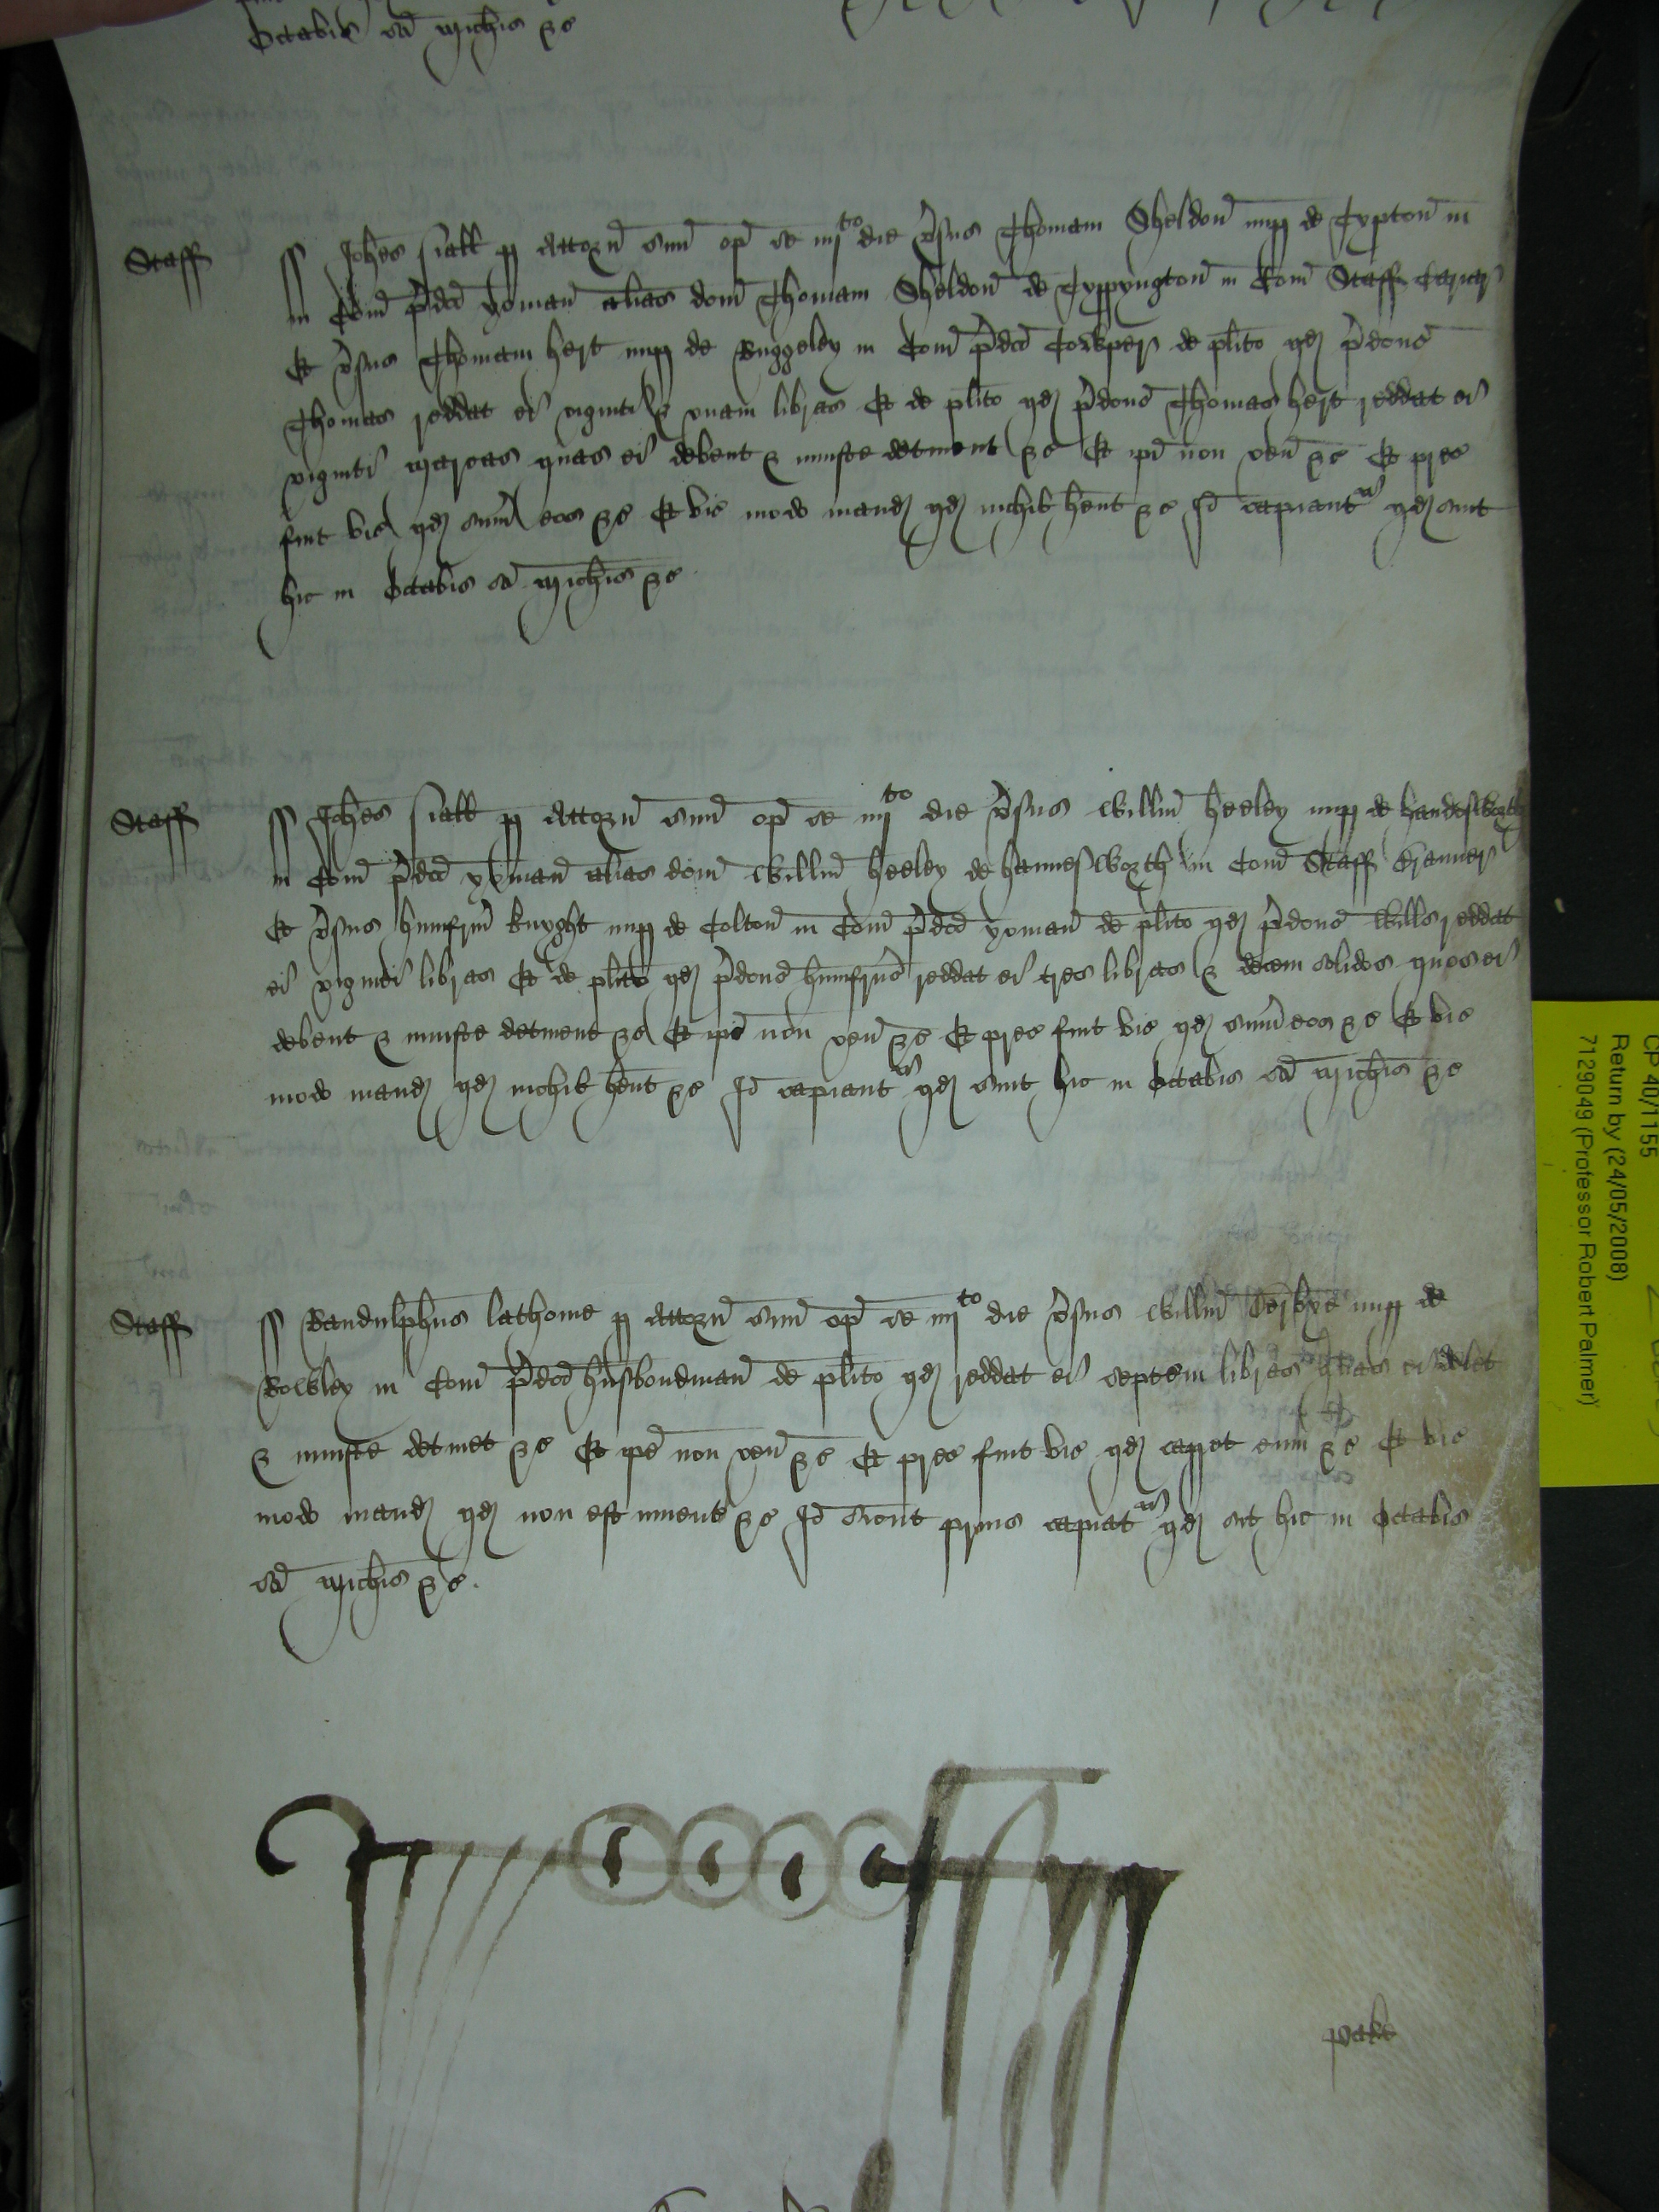 Octabis sci Michis &c
Staff
ss Johes siall p attorn suu op se iiijto die vsus Thomam Sheldon nup de Typton in
in Com pdco yoman alias dcm Thomam Sheldon de Typpyngton in Com Staff Carier
Et vsus Thomam hert nup de Ruggeley in Com pdco Cowper de plito qd pdcus
Thomas reddat ei viginti & vnam libras Et de plito qd pdcus Thomas hert reddat ei
viginti marcas quas ei debent & iniuste detinent &c Et ipi non ven &c Et prec
fuit vic qd sum eos &c Et vic modo mand qd nichil hent &c Id capiantr qd sint
hic in Octabis sci Michis &c
Staff
ss Johes siall p attorn suu op se iiijto die vsus Willm heeley nup de handesworth
in Com pdco yoman alias dcm Willm heeley de hannesworth in Com Staff Tanner
Et vsus humfrm knyght nup de Colton in Com pdco yoman de plito qd pdcus Wills reddat
ei viginti libras Et de plito qd pdcus humfrus reddat ei tres libras & decem solidos quos ei
debent & iniuste detinent &c Et ipi non ven &c Et prec fuit vic qd sum eos &c Et vic
modo mand qd nichil hent &c Id capiantr qd sint hic in Octabis sci Michis &c
Staff
ss Randulphus lathome p attorn suu op se iiijto die vsus Willm Derbye nup de
Rowley in Com pdco husbondman de plito qd reddat ei septem libras quas ei debet
& iniuste detinet &c Et ipe non ven &c Et prec fuit vic qd capet eum &c Et vic
modo mand qd non est inuent &c Id sicut prius capiatr qd sit hic in Octabis
sci Michis &c.
CP 40/1155
Return by (24/05/2008)
7129049 (Professor Robert Palmer)